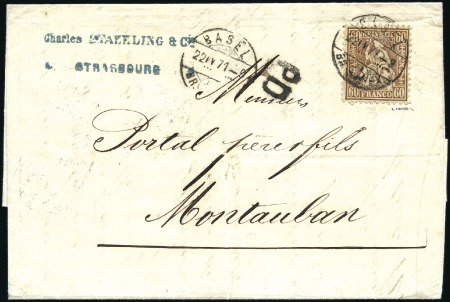 Charles STAEHLING & Cie
STRASBOURG
BASEL
22 IV 71
PD
60 60
60 FRANCO 60
Messieurs
Portal père & fils
Montauban